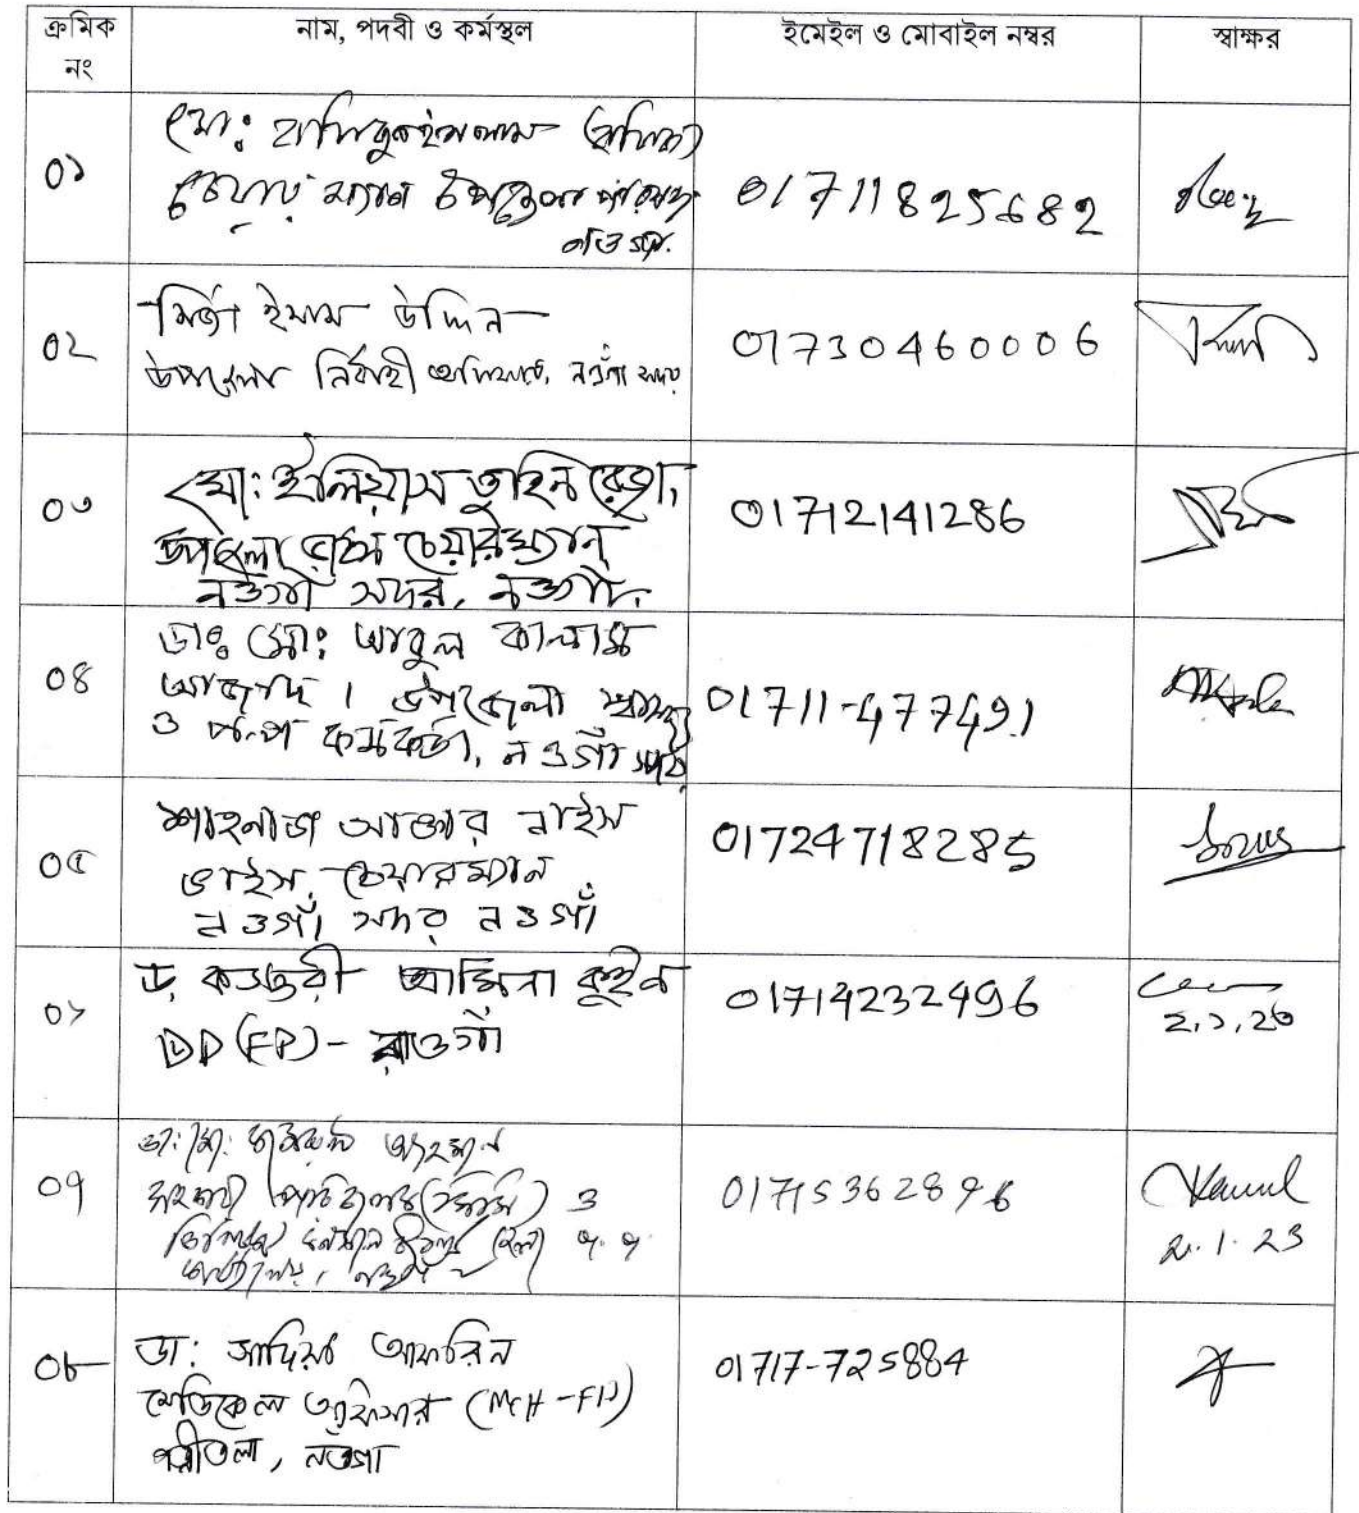 ক্রমিক নং
নাম, পদবী ও কর্মস্থল
ইমেইল ও মোবাইল নম্বর
স্বাক্ষর
০১
মো: (রফিক)
চেয়ারম্যান উপজেলা পরিষদ
নওগাঁ.
01711825682
০২
মির্জা ইমাম উদ্দিন
উপজেলা নির্বাহী অফিসার, নওগাঁ সদর
01730460006
০৩
মো: ইলিয়াস তুহিন রেজা,
উপজেলা ভাইস চেয়ারম্যান
নওগাঁ সদর, নওগাঁ.
01712141286
০৪
ডাঃ মো: আবুল কালাম
আজাদ । উপজেলা স্বাস্থ্য
ও প:প: কর্মকর্তা, নওগাঁ সদর
01711-477491
০৫
শাহনাজ আক্তার নাইস
ভাইস চেয়ারম্যান
নওগাঁ সদর নওগাঁ
01724718285
ড. কস্তুরী আমিনা কুইন
DD (FP) - নওগাঁ
01714232496
2.1.23
০৭
ডা: মো:
সহকারী পরিচালক (সিসি) ও
01715362896
Kamul
2.1.23
০৮
ডা: সাদিয়া আফরিন
মেডিকেল অফিসার (MCH-FP)
পত্নীতলা, নওগাঁ
01717-725884